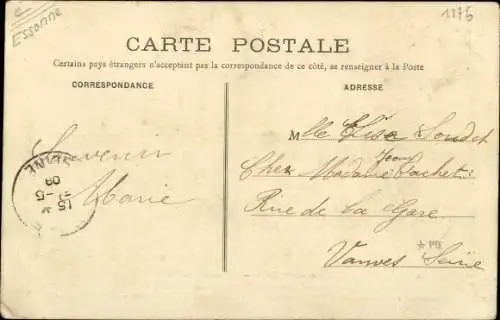 Essonne
1276
CARTE POSTALE
Certains pays étrangers n'acceptent pas la correspondance de ce côté, se renseigner à la Poste
CORRESPONDANCE
ADRESSE
Souvenir
Marie
SEINE
15 -5
09
Mlle Elise
Chez Madame Jean Sachet
Rue de la Gare
Vanves Seine